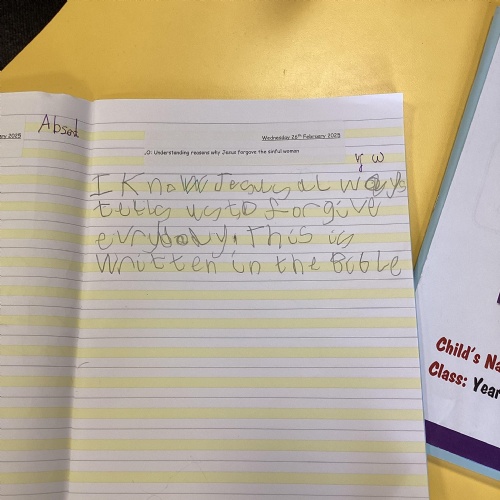 Absent
ary 2025
Wednesday 26th February 2025
.O: Understanding reasons why Jesus forgave the sinful woman
y w
I Know Jesus always
tells us to forgive
evrybody. This is
written in the Bible
Child's Na
Class: Year